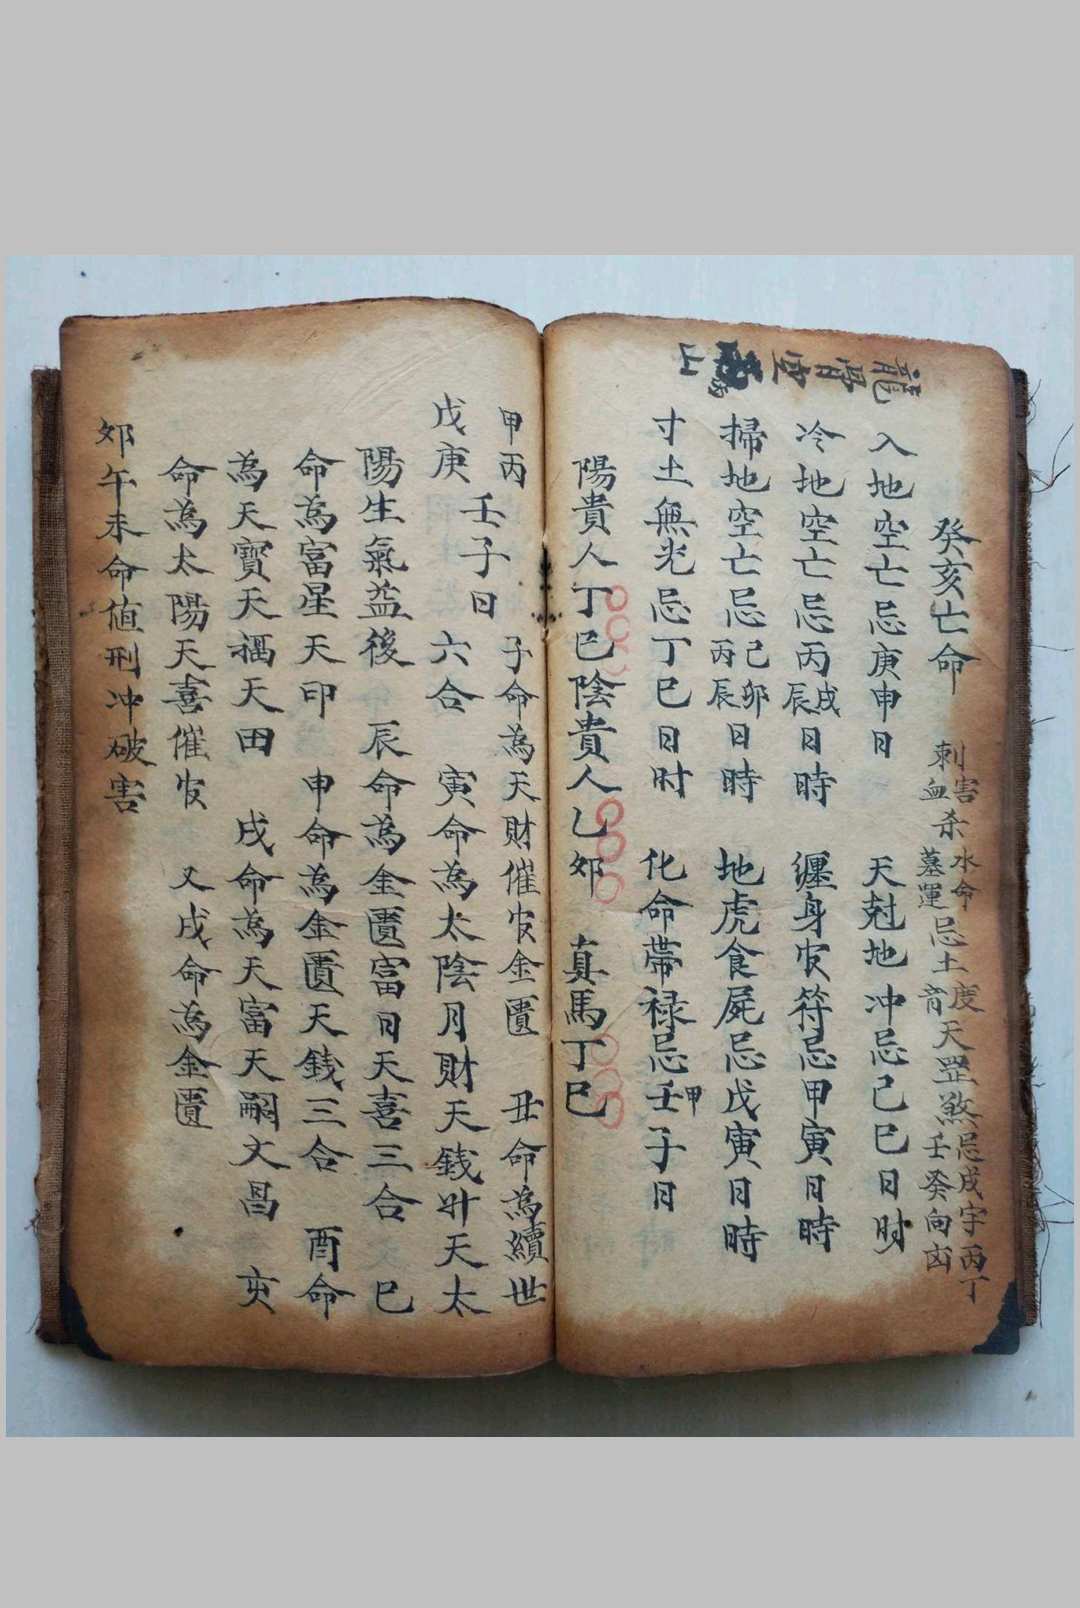 龍骨空亡山
癸亥亡命 刺血害杀 水命墓運忌土度育 天罡煞忌戌字丙丁壬癸向凶
入地空亡忌庚申日 天尅地冲忌己巳日时
冷地空亡忌丙辰戌日時 纏身官符忌甲寅日時
掃地空亡忌己卯丙辰日時 地虎食屍忌戊寅日時
寸土無光忌丁巳日时 化命帶禄忌壬甲子日
陽貴人丁巳陰貴人乙卯 真馬丁巳
甲丙戊庚壬子日 子命為天財催官金匱 丑命為續世
六合 寅命為太陰月財天錢 廾天太
陽生氣益後 辰命為金匱富日天喜三合 巳
命為富星天印 申命為金匱天錢三合 酉命
為天寶天福天田 戌命為天富天嗣文昌 亥
命為太陽天喜催官 又戌命為金匱
卯午未命值刑冲破害